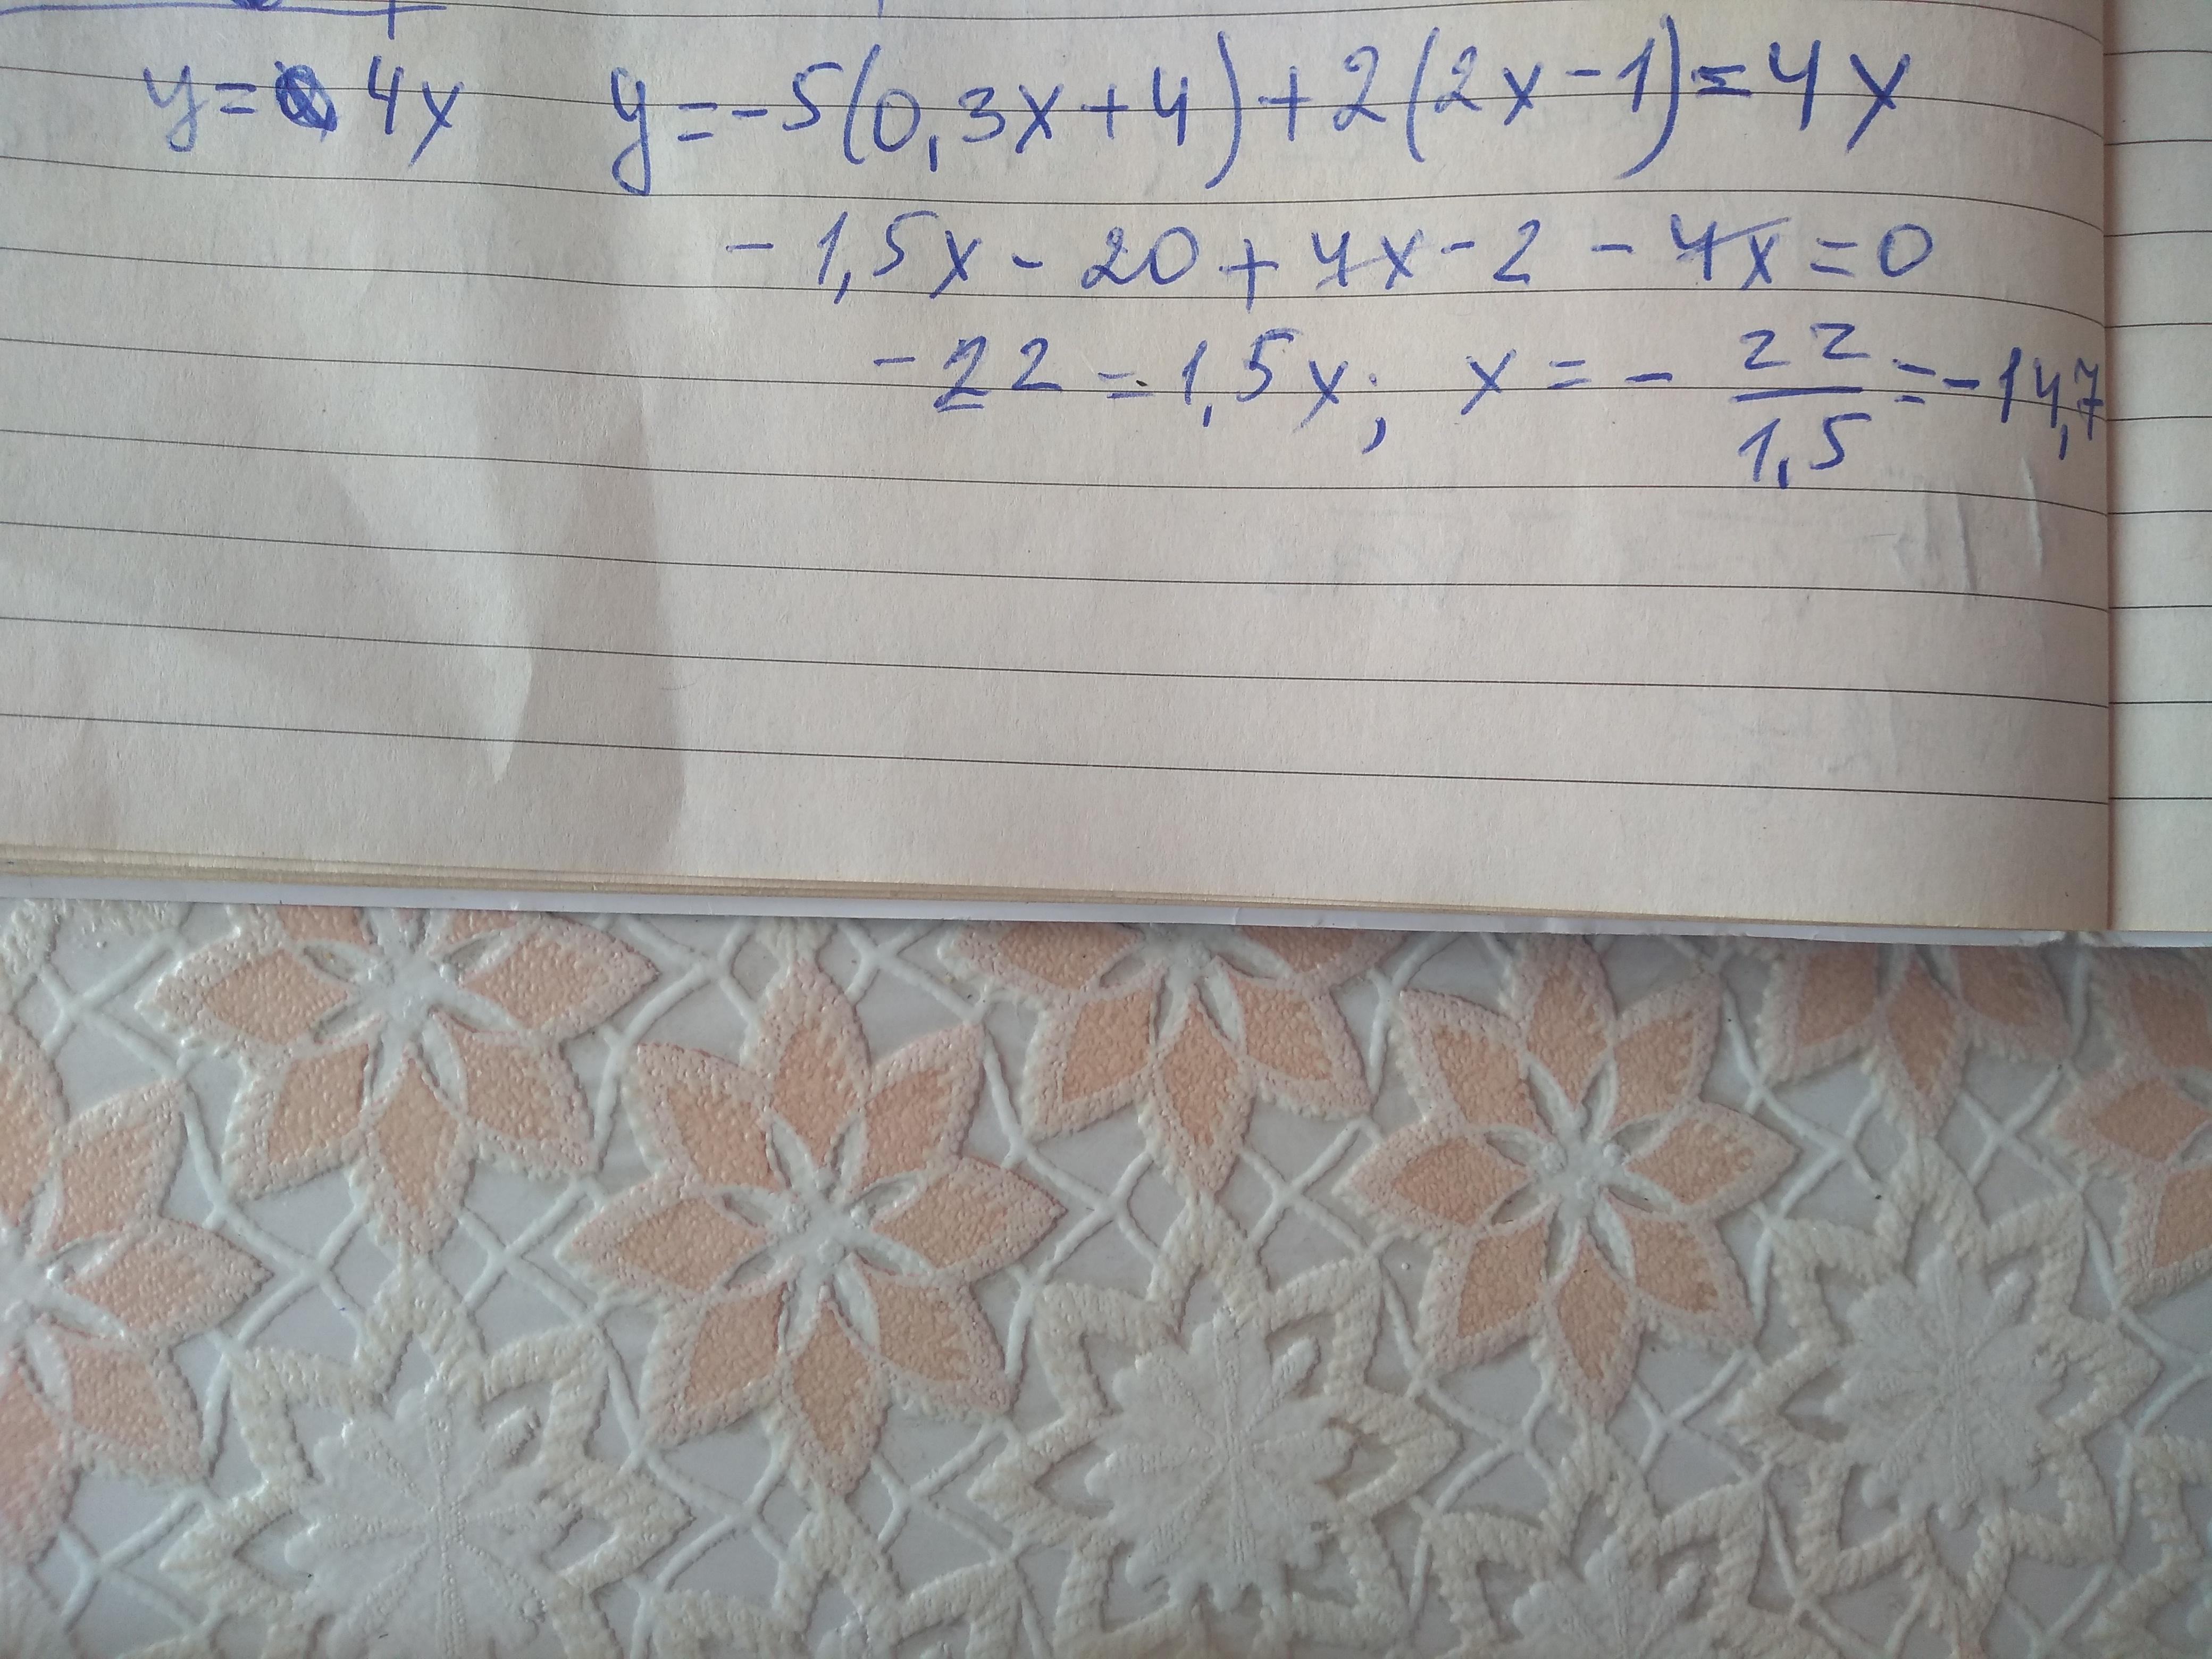 y = 4x y = -5(0,3x + 4) + 2(2x - 1) = 4x
- 1,5x - 20 + 4x - 2 - 4x = 0
- 22 = 1,5x; x = - 22/1,5 = - 14,7